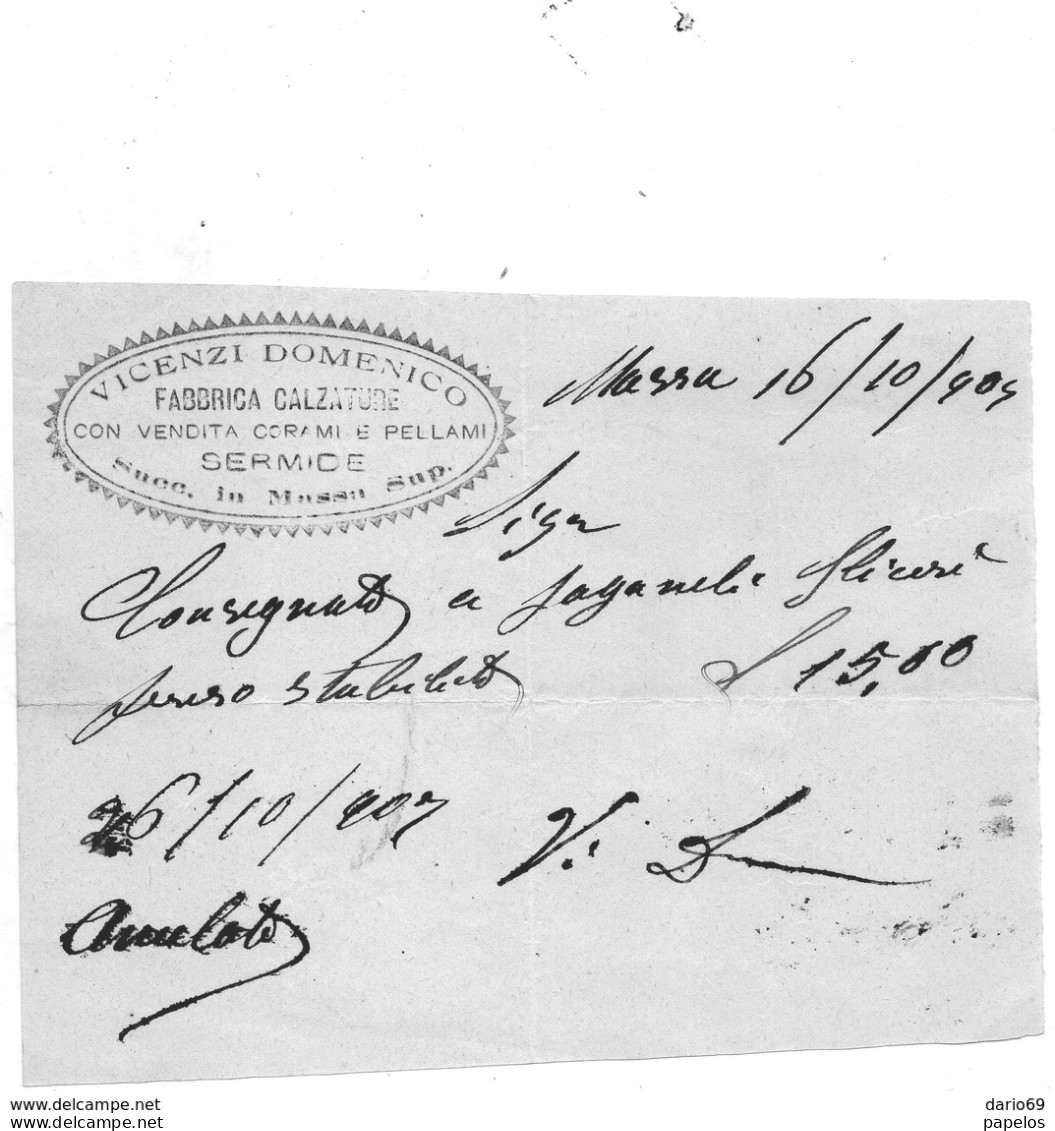 VICENZI DOMENICO
FABBRICA CALZATURE
CON VENDITA CORAMI E PELLAMI
SERMIDE
Succ. in Massa Sup.
Massa 16/10/907
Consegnato a
stabilito £ 15,00
26/10/907 V. D
Anulato
www.delcampe.net
www.delcampe.net
dario69
papelos